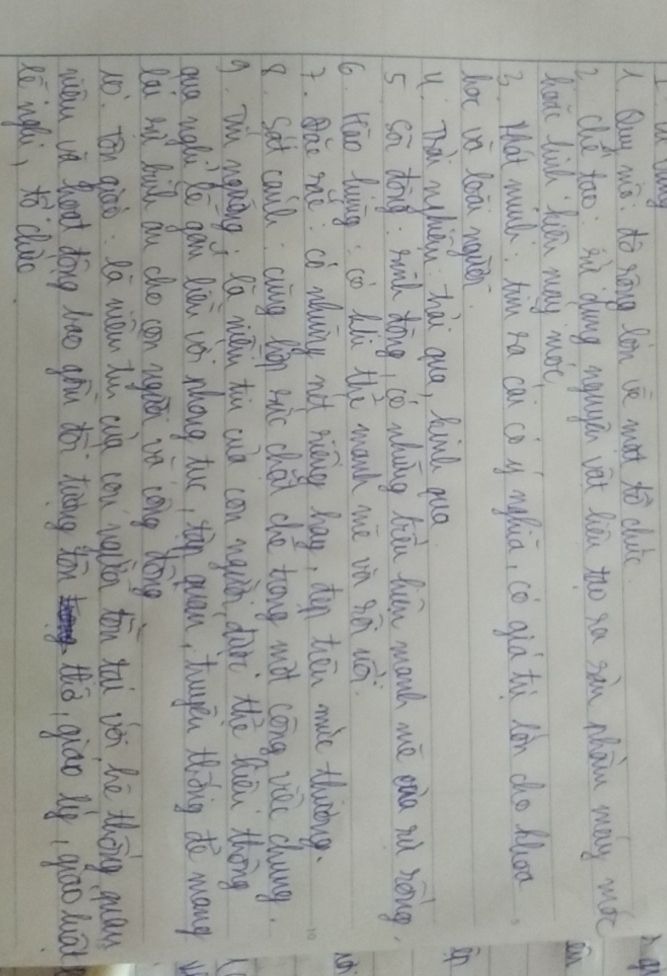 1. Quy mô: độ rộng lớn về mặt tổ chức.
2. Chế tạo: sử dụng nguyên vật liệu tạo ra sản phẩm máy móc
hoặc linh kiện máy móc.
3. Phát minh: tìm ra cái có ý nghĩa, có giá trị lớn cho khoa
học và loài người.
4. Trải nghiệm: trải qua, kinh qua
5. Sôi động: sinh động, có những biểu hiện mạnh mẽ của sự sống.
6. Hào hùng: có khí thế mạnh mẽ và sôi nổi.
7. Đặc sắc: có những nét riêng hay, đẹp trên mức thường.
8. Sát cánh: cùng hợp sức chặt chẽ trong một công việc chung.
9. Tín ngưỡng: là niềm tin của con người được thể hiện thông
qua nghi lễ gắn liền với phong tục, tập quán, truyền thống để mang
lại sự bình an cho con người và cộng đồng
10. Tôn giáo: là niềm tin của con người tồn tại với hệ thống quan
niệm và hoạt động bao gồm đối tượng tôn thờ, giáo lý, giáo luật
lễ nghi, tổ chức